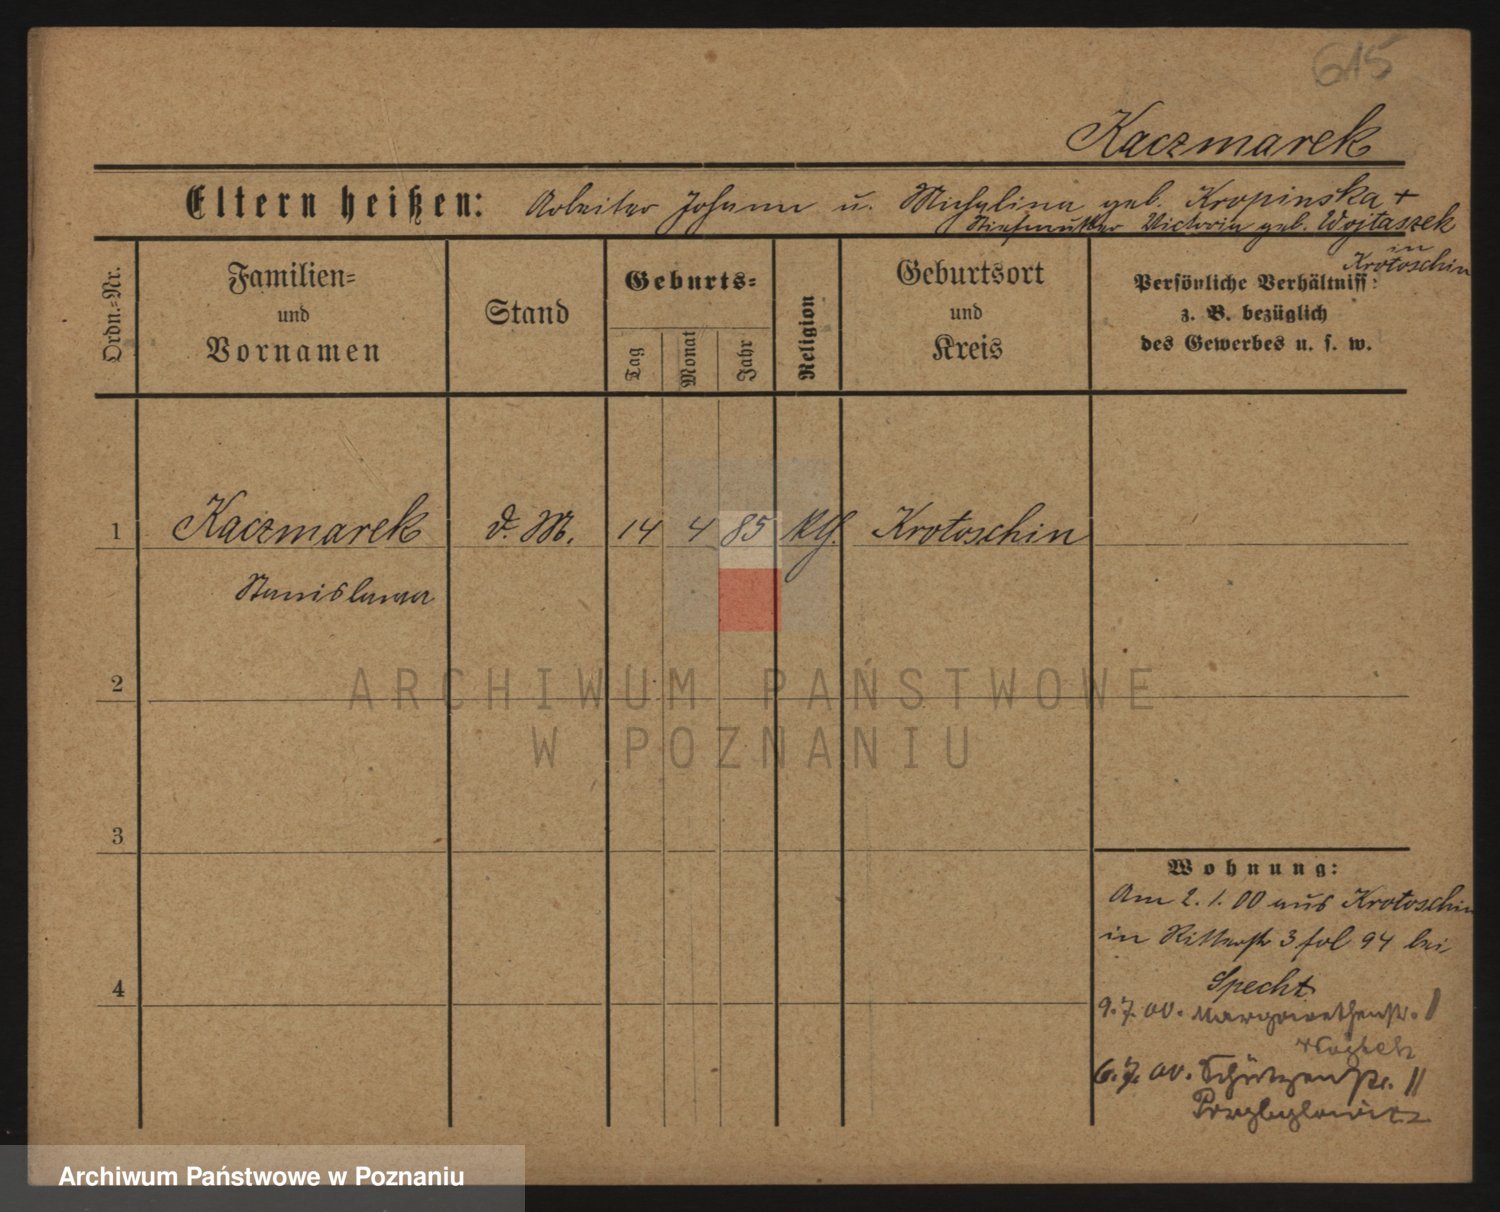 615
Kaczmarek
Eltern heißen: Arbeiter Johann u. Michalina geb. Kropinska +
Stiefmutter Victoria geb. Wojtaszek
in
Krotoschin
Ordn.=Nr.
Familien=
und
Vornamen
Stand
Geburts=
Tag
Monat
Jahr
Religion
Geburtsort
und
Kreis
Persönliche Verhältniss:
z. B. bezüglich
des Gewerbes u. s. w.
1 Kaczmarek d. M. 14 4 85 kth. Krotoschin
Stanislawa
2
ARCHIWUM PAŃSTWOWE
W POZNANIU
3
Wohnung:
Am 2. 1. 00 aus Krotoschin
in Ritterstr 3 fol 94 bei
4
Specht
9. 7. 00. Margarethenstr.
6. 7. 00. Schützenstr. 11
Przybylowicz
Archiwum Państwowe w Poznaniu